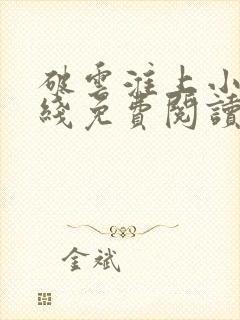 破雲淮上小
綫免費閱讀
金斌